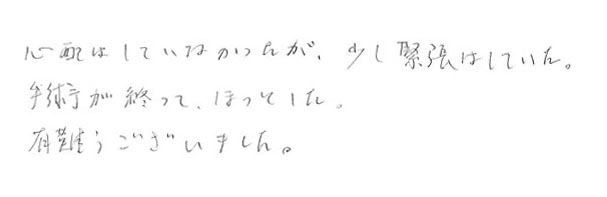 心配はしていなかったが、少し緊張はしていた。
手術が終って、ほっとした。
有難うございました。